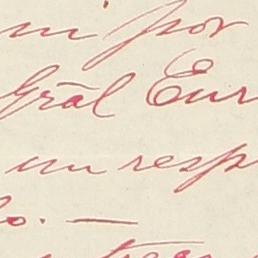 ni por
Grāl Eur
un resp
o. —